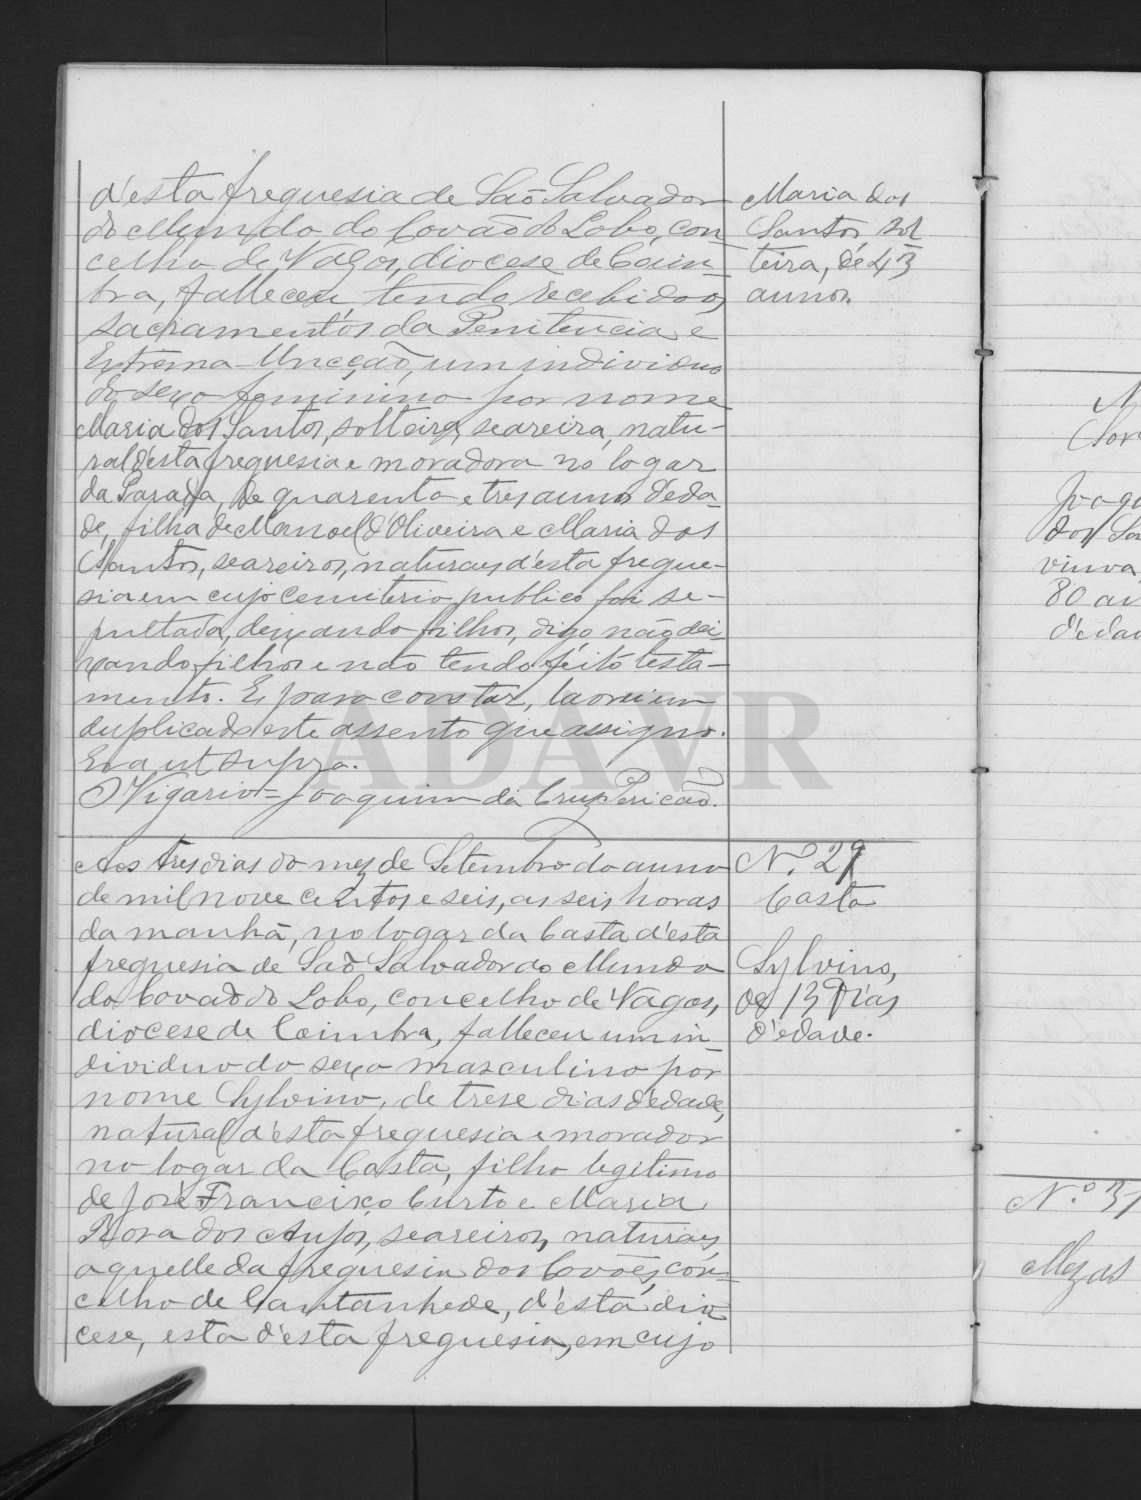 d'esta freguesia de São Salvador
do Mundo do Covão do Lobo, con
celho de Vagos, diocese de Coim_
bra, falleceu, tendo recebido os
sacramentos da Penitencia e
Extrema-Uncção, um individuo
do sexo feminino por nome
Maria dos Santos, solteira, seareira, natu-
ral d'esta freguesia e moradora no logar
da Parada, de quarenta e tres annos d'eda-
de, filha de Manoel d'Oliveira e Maria dos
Santos, seareiros, naturaes d'esta fregue-
sia em cujo cemiterio publico foi se-
pultada, deixando filhos, digo não dei
xando filhos e não tendo feito testa-
mento. E para constar, lavrei em
duplicado este assento que assigno.
Era ut supra.
O Vigario = Joaquim da Cruz Pericão.
Maria dos
Santos sol
teira, de 43
annos.
Aos tres dias do mez de Setembro do anno
de mil nove centos e seis, as seis horas
da manhã, no logar da Casta d'esta
freguesia de São Salvador do Mundo
do Covão do Lobo, concelho de Vagos,
diocese de Coimbra, falleceu um in_
dividuo do sexo masculino por
nome Sylvino, de trese dias d'edade,
natural d'esta freguesia e morador
no logar da Casta, filho legitimo
de José Francisco Curto e Maria
Rosa dos Anjos, seareiros, naturaes
aquelle da freguesia dos Covões, con=
celho de Cantanhede, d'esta dio
cese, esta d'esta freguesia, em cujo
Nº 29
Casta
Sylvino,
de 13 dias
d'edade.
ADAVR
Joaqu
dos Sa
viuva
80 an
d'edad
N.º 31
Mezas